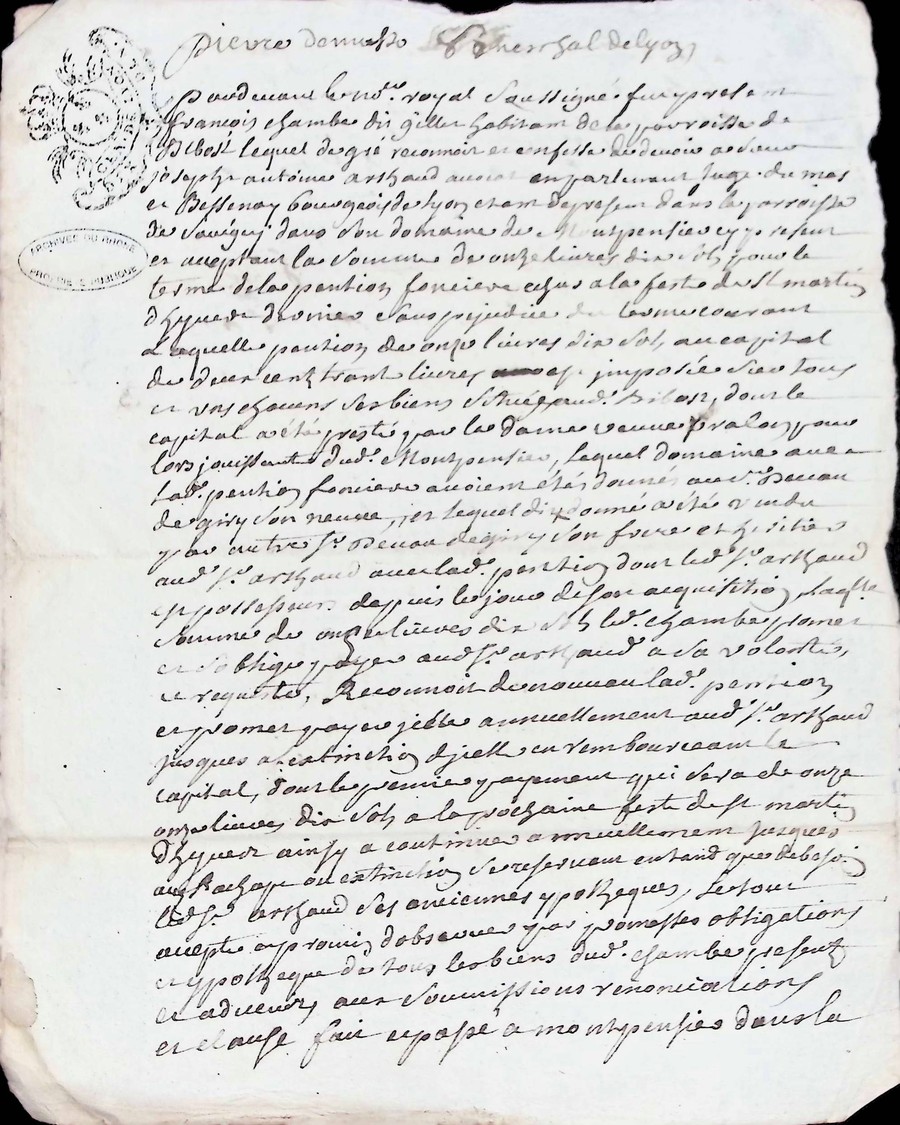 pierre demusso Senerchal delyon
ARCHIVES DU RHONE
PROPRIÉTÉ PUBLIQUE
Pardevant le no.re royal Soussigné fut present
francois chambe dit gillet habitant de la parroisse de
Bibost lequel de gré reconnoit et confesse de devoir a Sieur
joseph antoine arthaud avocat en parlement juge du mas
et Bessenay bourgeois de lyon etant de present dans la parroisse
de Savigny dans Son domaine de Montpensier cy present
et aceptant la Somme de onze livres dix Sols pour le
terme de la pention fonciere echus a la feste de St martin
d'hyver dernier Sans prejudice du terme courant
Laquelle pention de onze livres dix Sols au capital
de deux cent trant livres est imposée Sur tous
et uns chacuns Ses biens Situés aud. Bibost, dont le
capital a été presté par la dame veuve pralas pour
lors jouissante dud. Montpensier, lequel domaine avec
lad. pention fonciere avoient etés donnés au Sr.
de giry Son neveu, et lequel dit donné a été vendu
par autre Sr. de giry Son frere et heritier
aud. Sr. arthaud avec lad. pention dont led. Sr. arthaud
est possesseur depuis le jour de Son acquisition, Laq.lle
Somme de onze livres dix Sols led. chambe promet
et S'oblige payer aud. Sr. arthaud a Sa volonté,
et requeste, Reconnoit de nouveau lad. pention
et promet payer icelle annuellement aud. Sr. arthaud
jusques a extinction d'icelle en rembourceant le
capital, dont le premier payement qui Sera de onze
onze livres dix Sols a la prochaine feste de St martin
d'hyver ainsy a continuer annuellement jusques
au rachapt ou extinction Se reservant entand que de besoin
led. Sr. arthaud Ses anciennes ypotheques, Le tout
acepté a promis d'observer par promesses obligations
et ypotheque de tous les biens dud. chambe presents
et advenirs, aux Soumissions renonciations
et clause fait et passé a montpensier dans la